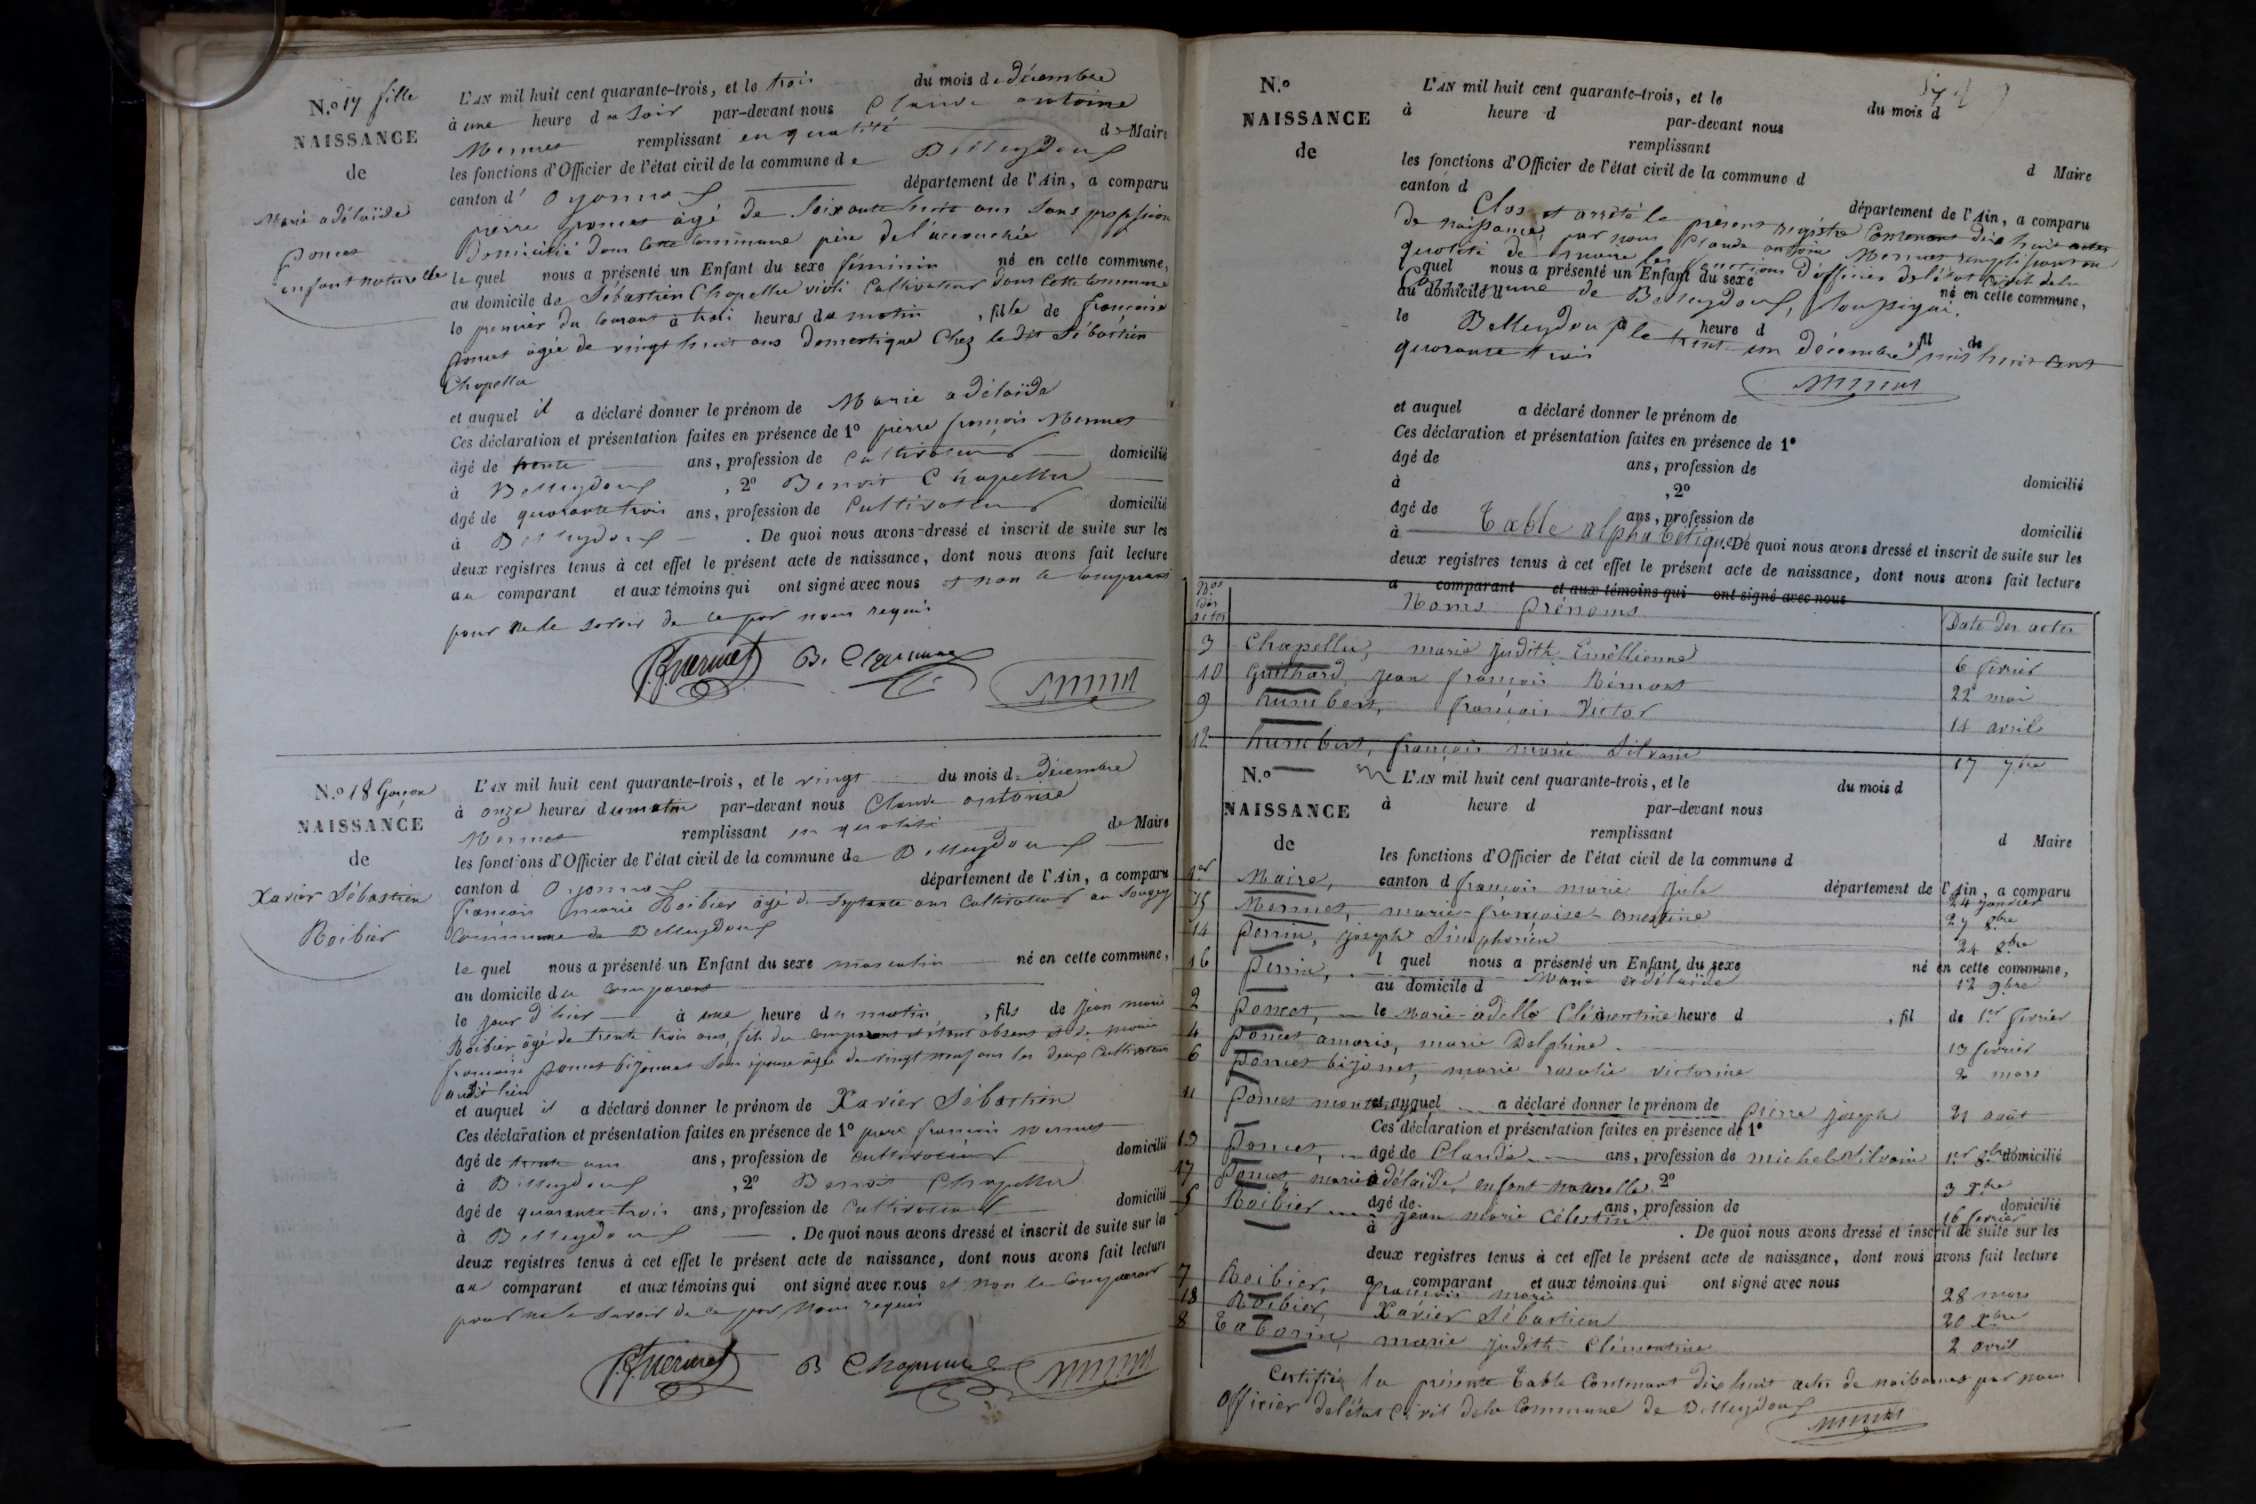 N.º 17 fille
NAISSANCE
de
Marie adélaïde
poncet
enfant naturelle
L'AN mil huit cent quarante-trois, et le trois du mois de décembre
à une heure du soir par-devant nous Claude antoine
Mermet remplissant en qualité de Maire
les fonctions d'Officier de l'état civil de la commune de Belleydoux
canton d' Oyonnax département de l'Ain, a comparu
pierre poncet âgé de soixante huit ans sans profession
Domicilié dans cette commune père de l'accouchée
le quel nous a présenté un Enfant du sexe féminin né en cette commune,
au domicile de Sébastien Chapellu cultivateur dans cette commune
le premier du courant à trois heures du matin, fille de françoise
poncet âgée de vingt huit ans domestique chez le dit Sébastien
Chapellu
et auquel il a déclaré donner le prénom de Marie adélaïde
Ces déclaration et présentation faites en présence de 1º pierre françois Mermet
âgé de trente ans, profession de cultivateur domicilié
à Belleydoux, 2º Benoit Chapellu
âgé de quarante trois ans, profession de Cultivateur domicilié
à Belleydoux. De quoi nous avons dressé et inscrit de suite sur les
deux registres tenus à cet effet le présent acte de naissance, dont nous avons fait lecture
au comparant et aux témoins qui ont signé avec nous et non le comparant
pour ne le savoir de ce par nous requis
N.º 18 Garçon
NAISSANCE
de
Xavier Sébastien
Roibier
L'AN mil huit cent quarante-trois, et le vingt du mois de décembre
à onze heures du matin par-devant nous Claude antoine
Mermet remplissant en qualité de Maire
les fonctions d'Officier de l'état civil de la commune de Belleydoux
canton d Oyonnax département de l'Ain, a comparu
françois marie Roibier âgé de septante ans cultivateur au Sougey
Commune de Belleydoux
le quel nous a présenté un Enfant du sexe masculin né en cette commune,
au domicile du comparant
le jour d'hier à une heure du matin, fils de jean marie
Roibier âgé de trente trois ans, fils du comparant et étant absent et de marie
françoise poncet bijonnet son épouse âgée de vingt neuf ans les deux cultivateurs
audit lieu
et auquel il a déclaré donner le prénom de Xavier Sébastien
Ces déclaration et présentation faites en présence de 1º pierre françois Mermet
âgé de trente ans ans, profession de cultivateur domicilié
à Belleydoux, 2º Benoit Chapellu
âgé de quarante trois ans, profession de Cultivateur domicilié
à Belleydoux. De quoi nous avons dressé et inscrit de suite sur les
deux registres tenus à cet effet le présent acte de naissance, dont nous avons fait lecture
au comparant et aux témoins qui ont signé avec nous et non le comparant
pour ne le savoir de ce par nous requis
N.º
NAISSANCE
de
L'AN mil huit cent quarante-trois, et le du mois d
à heure d par-devant nous
remplissant d Maire
les fonctions d'Officier de l'état civil de la commune d
canton d département de l'Ain, a comparu
Clos et arrêté le présent registre contenant dix huit actes
de naissance, par nous Claude antoine Mermet remplissant en
qualité de maire les fonctions d'officier de l'état civil de la
l quel nous a présenté un Enfant du sexe né en cette commune,
commune de Belleydoux, soussigné.
au domicile d
le heure d, fil de
Belleydoux le trente un décembre mil huit cent
quarante trois
et auquel a déclaré donner le prénom de
Ces déclaration et présentation faites en présence de 1º
âgé de ans, profession de domicilié
à, 2º
âgé de ans, profession de domicilié
Table alphabétique
à. De quoi nous avons dressé et inscrit de suite sur les
deux registres tenus à cet effet le présent acte de naissance, dont nous avons fait lecture
a comparant et aux témoins qui ont signé avec nous
Nos des actes Noms prénoms Date des actes
3 Chapellu, marie judith Emellienne 6 février
10 Guithard, jean françois 22 mai
9 humbert, françois Victor 14 avril
12 humbert, françois marie Silvain 17 7bre
N.º
NAISSANCE
de
L'AN mil huit cent quarante-trois, et le du mois d
à heure d par-devant nous
remplissant d Maire
les fonctions d'Officier de l'état civil de la commune d
canton d département de l'Ain, a comparu
1er Maire, françois marie jule 24 janvier
15 Mermet, marie-françoise-ernestine 27 8bre
14 perrin, joseph Simphorien 24 8bre
l quel nous a présenté un Enfant du sexe né en cette commune,
16 perrin, Marie adélaïde 12 9bre
au domicile d
2 poncet, Marie-adelle Clémentine 1er février
le heure d, fil de
4 poncet amaris, marie Delphine 13 février
6 poncet bijonet, marie rosalie victorine 2 mars
et auquel a déclaré donner le prénom de
11 poncet pierre joseph 21 août
Ces déclaration et présentation faites en présence de 1º
13 poncet, Claude michel Silvain 1er 8bre
âgé de ans, profession de domicilié
17 poncet, marie adélaïde, enfant naturelle 3 Xbre
2º
5 Roibier jean marie Célestin 16 février
âgé de ans, profession de domicilié
à. De quoi nous avons dressé et inscrit de suite sur les
deux registres tenus à cet effet le présent acte de naissance, dont nous avons fait lecture
a comparant et aux témoins qui ont signé avec nous
7 Roibier, françois marie 28 mars
18 Roibier, Xavier Sébastien 20 Xbre
8 Tabarin, marie judith Clémentine 2 avril
Certifiée la présente table contenant dix huit actes de naissance par nous
officier de l'état civil de la commune de Belleydoux